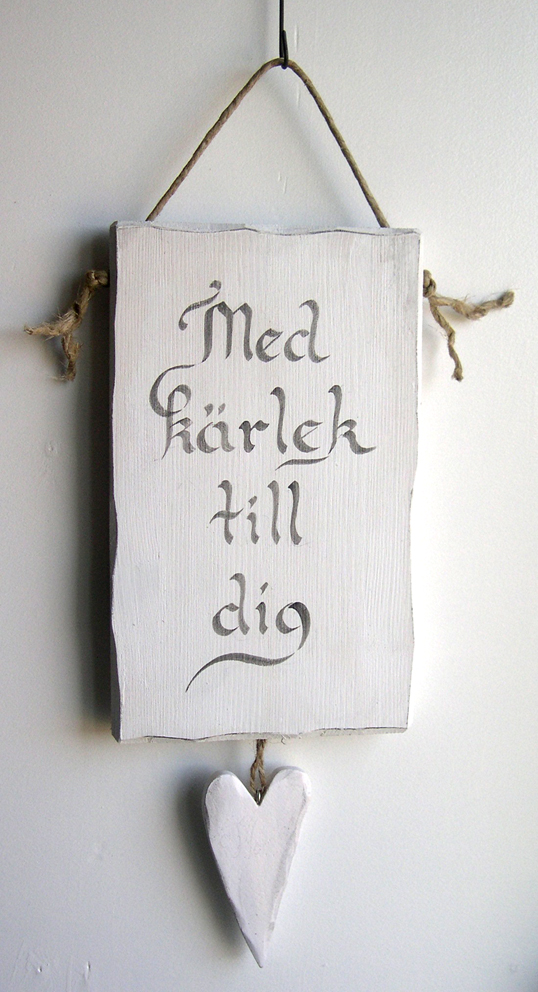 Med
kärlek
till
dig